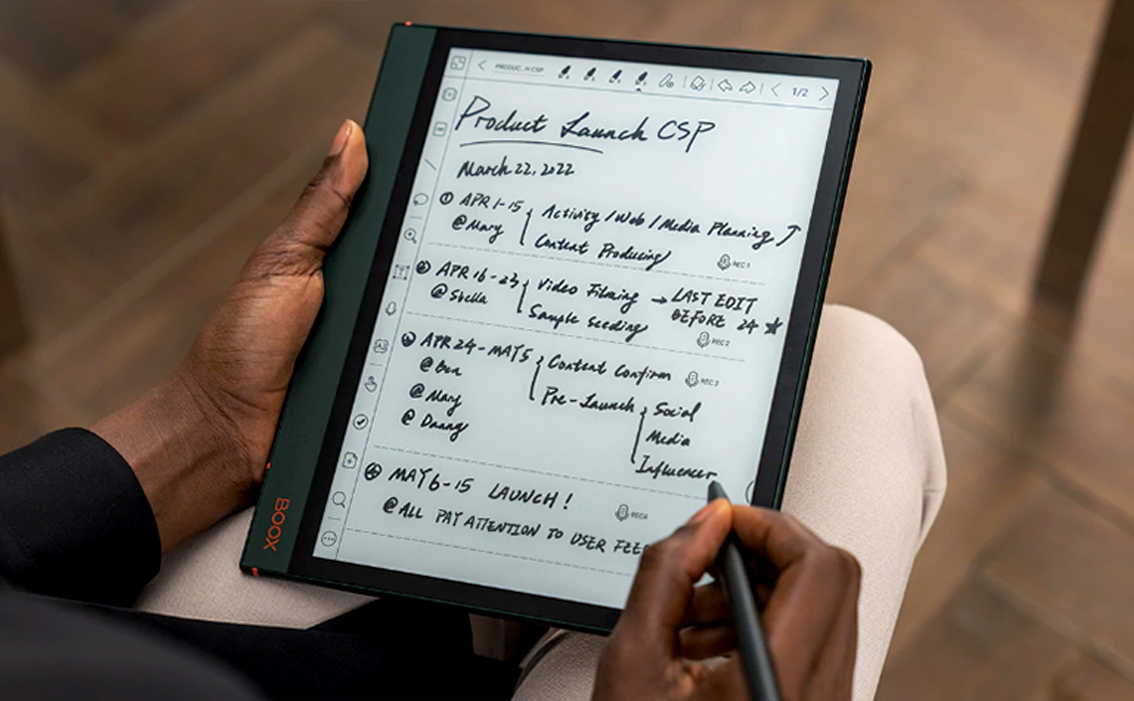 PRODUC_H CSP
1/2
Product Launch CSP
March 22, 2022
① APR 1-15 Activity / Web / Media Planning
@Mary Content Producing
REC 1
② APR 16-23 Video Filming → LAST EDIT
@Stella Sample Seeding BEFORE 24 ★
REC 2
③ APR 24-MAY 5 Content Confirm REC 3
@Ben Pre-Launch Social
@Mary Media
@Danny Influencer
④ MAY 6-15 LAUNCH! REC4
@ALL PAY ATTENTION TO USER
BOOX